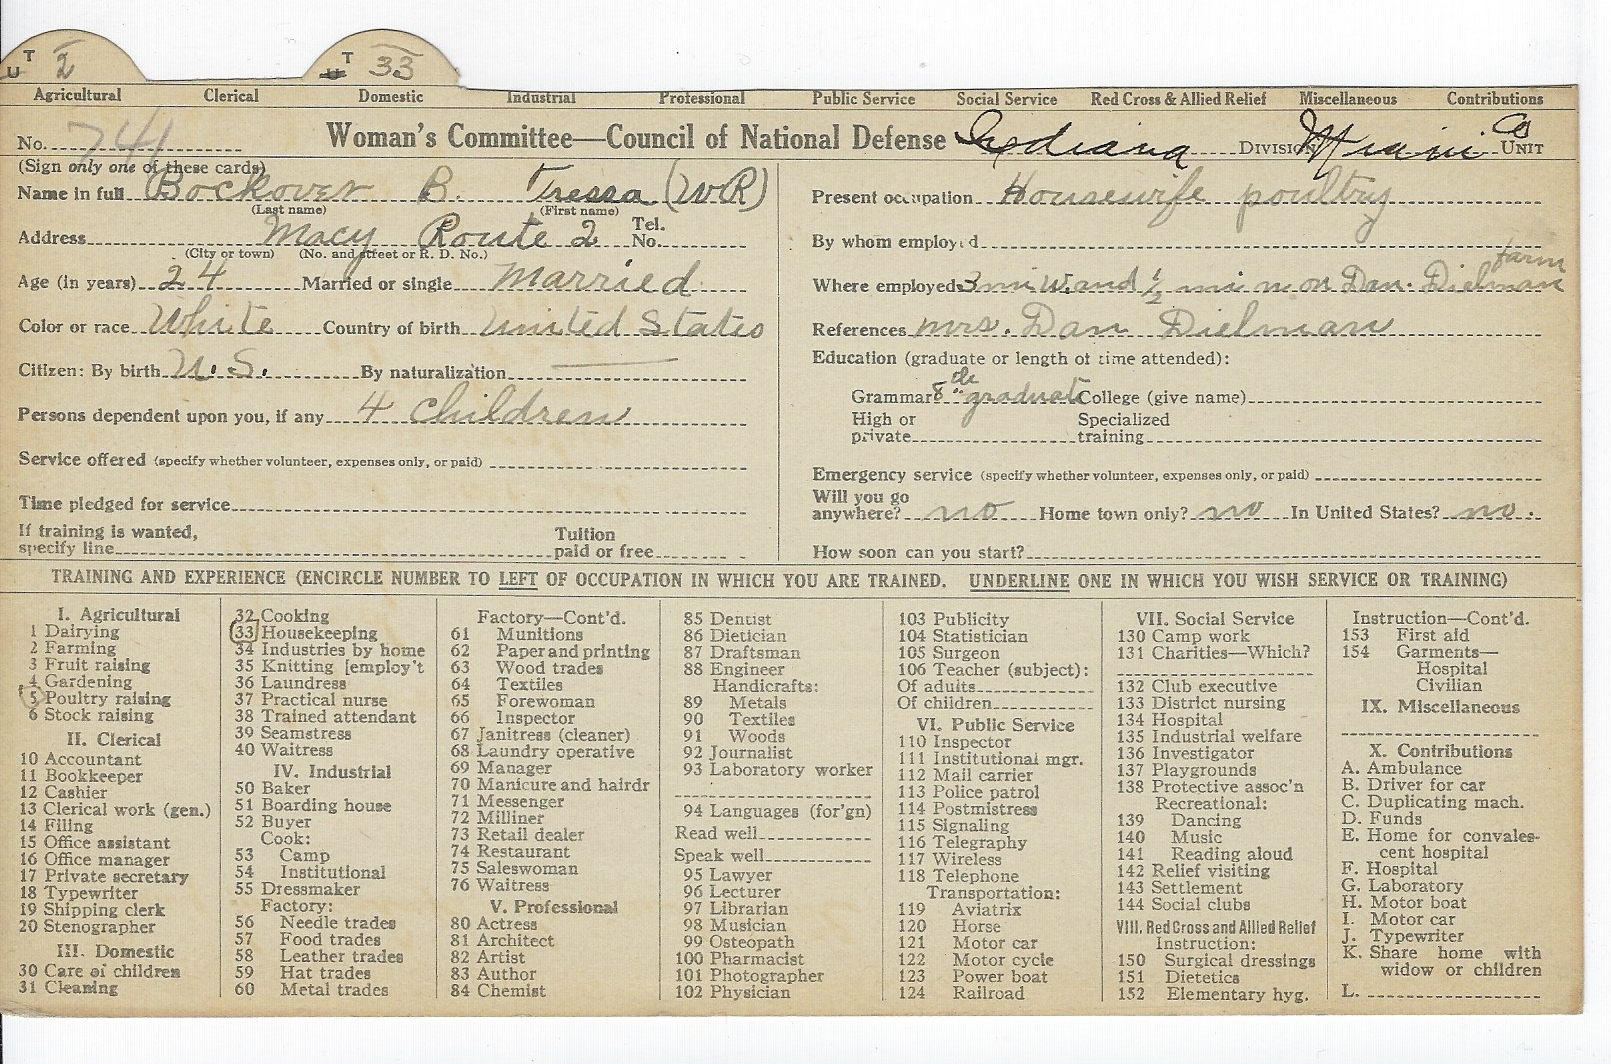 T U 2 T U 33
Agricultural Clerical Domestic Industrial Professional Public Service Social Service Red Cross & Allied Relief Miscellaneous Contributions
No. 741 Woman's Committee—Council of National Defense Indiana DIVISION Miami Co UNIT
(Sign only one of these cards)
Name in full Bockover B. Tressa (WR)
(Last name) (First name)
Address Macy Route 2 Tel. No.
(City or town) (No. and street or R. D. No.)
Age (in years) 24 Married or single married
Color or race White Country of birth United States
Citizen: By birth U.S. By naturalization —
Persons dependent upon you, if any 4 children
Service offered (specify whether volunteer, expenses only, or paid)
Time pledged for service
If training is wanted, specify line Tuition paid or free
Present occupation Housewife poultry
By whom employed
Where employed 3 mi W. and ½ mi n. on Dan. Dielman farm
References mrs. Dan Dielman
Education (graduate or length of time attended):
Grammar 8th graduate College (give name)
High or private Specialized training
Emergency service (specify whether volunteer, expenses only, or paid)
Will you go anywhere? no Home town only? no In United States? no.
How soon can you start?
TRAINING AND EXPERIENCE (ENCIRCLE NUMBER TO LEFT OF OCCUPATION IN WHICH YOU ARE TRAINED. UNDERLINE ONE IN WHICH YOU WISH SERVICE OR TRAINING)
I. Agricultural
1 Dairying
2 Farming
3 Fruit raising
4 Gardening
5 Poultry raising
6 Stock raising
II. Clerical
10 Accountant
11 Bookkeeper
12 Cashier
13 Clerical work (gen.)
14 Filing
15 Office assistant
16 Office manager
17 Private secretary
18 Typewriter
19 Shipping clerk
20 Stenographer
III. Domestic
30 Care of children
31 Cleaning
32 Cooking
33 Housekeeping
34 Industries by home
35 Knitting [employ't
36 Laundress
37 Practical nurse
38 Trained attendant
39 Seamstress
40 Waitress
IV. Industrial
50 Baker
51 Boarding house
52 Buyer
Cook:
53 Camp
54 Institutional
55 Dressmaker
Factory:
56 Needle trades
57 Food trades
58 Leather trades
59 Hat trades
60 Metal trades
Factory—Cont'd.
61 Munitions
62 Paper and printing
63 Wood trades
64 Textiles
65 Forewoman
66 Inspector
67 Janitress (cleaner)
68 Laundry operative
69 Manager
70 Manicure and hairdr
71 Messenger
72 Milliner
73 Retail dealer
74 Restaurant
75 Saleswoman
76 Waitress
V. Professional
80 Actress
81 Architect
82 Artist
83 Author
84 Chemist
85 Dentist
86 Dietician
87 Draftsman
88 Engineer
Handicrafts:
89 Metals
90 Textiles
91 Woods
92 Journalist
93 Laboratory worker
94 Languages (for'gn)
Read well
Speak well
95 Lawyer
96 Lecturer
97 Librarian
98 Musician
99 Osteopath
100 Pharmacist
101 Photographer
102 Physician
103 Publicity
104 Statistician
105 Surgeon
106 Teacher (subject):
Of adults
Of children
VI. Public Service
110 Inspector
111 Institutional mgr.
112 Mail carrier
113 Police patrol
114 Postmistress
115 Signaling
116 Telegraphy
117 Wireless
118 Telephone
Transportation:
119 Aviatrix
120 Horse
121 Motor car
122 Motor cycle
123 Power boat
124 Railroad
VII. Social Service
130 Camp work
131 Charities—Which?
132 Club executive
133 District nursing
134 Hospital
135 Industrial welfare
136 Investigator
137 Playgrounds
138 Protective assoc'n
Recreational:
139 Dancing
140 Music
141 Reading aloud
142 Relief visiting
143 Settlement
144 Social clubs
VIII. Red Cross and Allied Relief
Instruction:
150 Surgical dressings
151 Dietetics
152 Elementary hyg.
Instruction—Cont'd.
153 First aid
154 Garments—
Hospital
Civilian
IX. Miscellaneous
X. Contributions
A. Ambulance
B. Driver for car
C. Duplicating mach.
D. Funds
E. Home for convales-
cent hospital
F. Hospital
G. Laboratory
H. Motor boat
I. Motor car
J. Typewriter
K. Share home with
widow or children
L.